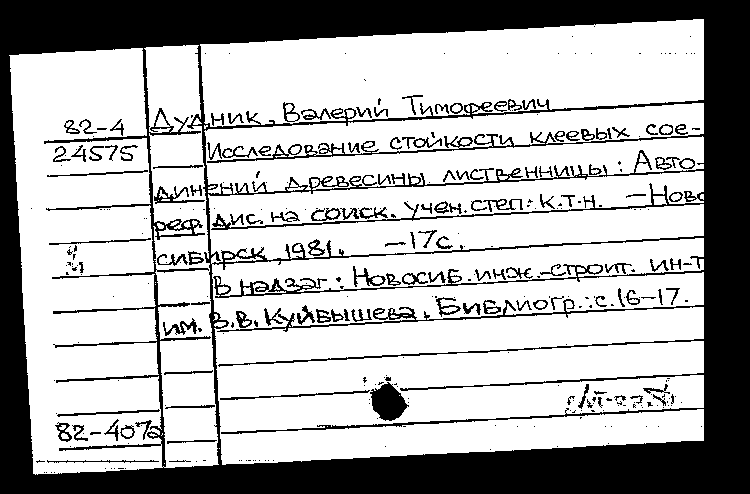 82-4 Дудник, Валерий Тимофеевич
24575 Исследование стойкости клеевых сое-
динений древесины лиственницы: Авто-
реф. дис. на соиск. учен. степ.: к.т.н. — Ново
сибирск, 1981. — 17с.
В надзаг.: Новосиб. инж.-строит. ин-т
им. В.В. Куйбышева. Библиогр.: с. 16-17.
82-4072